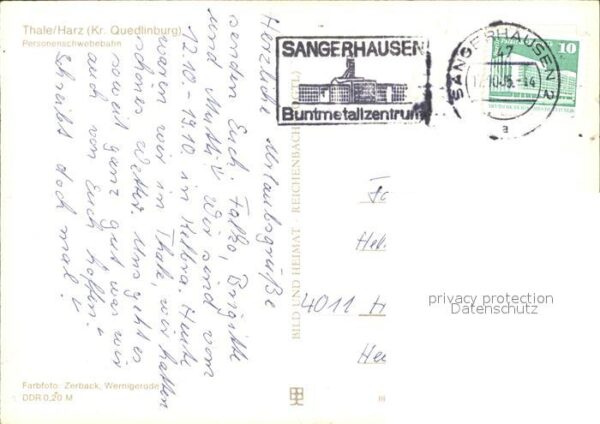 Thale/Harz (Kr. Quedlinburg)
Personenschwebebahn
SANGERHAUSEN
Buntmetallzentrum
SANGERHAUSEN 2
47
a
10
Herzliche Urlaubsgrüße
senden Euch Falko, Brigitte
und Mutti. Wir sind vom
12.10 - 19.10 in Kelbra. Heute
waren wir in Thale, wir hatten
schönes Wetter. Uns geht es
soweit ganz gut was wir
auch von Euch hoffen.
Schreibt doch mal!
BILD UND HEIMAT REICHENBACH
4011 H
privacy protection
Datenschutz
Farbfoto: Zerback, Wernigerode
DDR 0,20 M